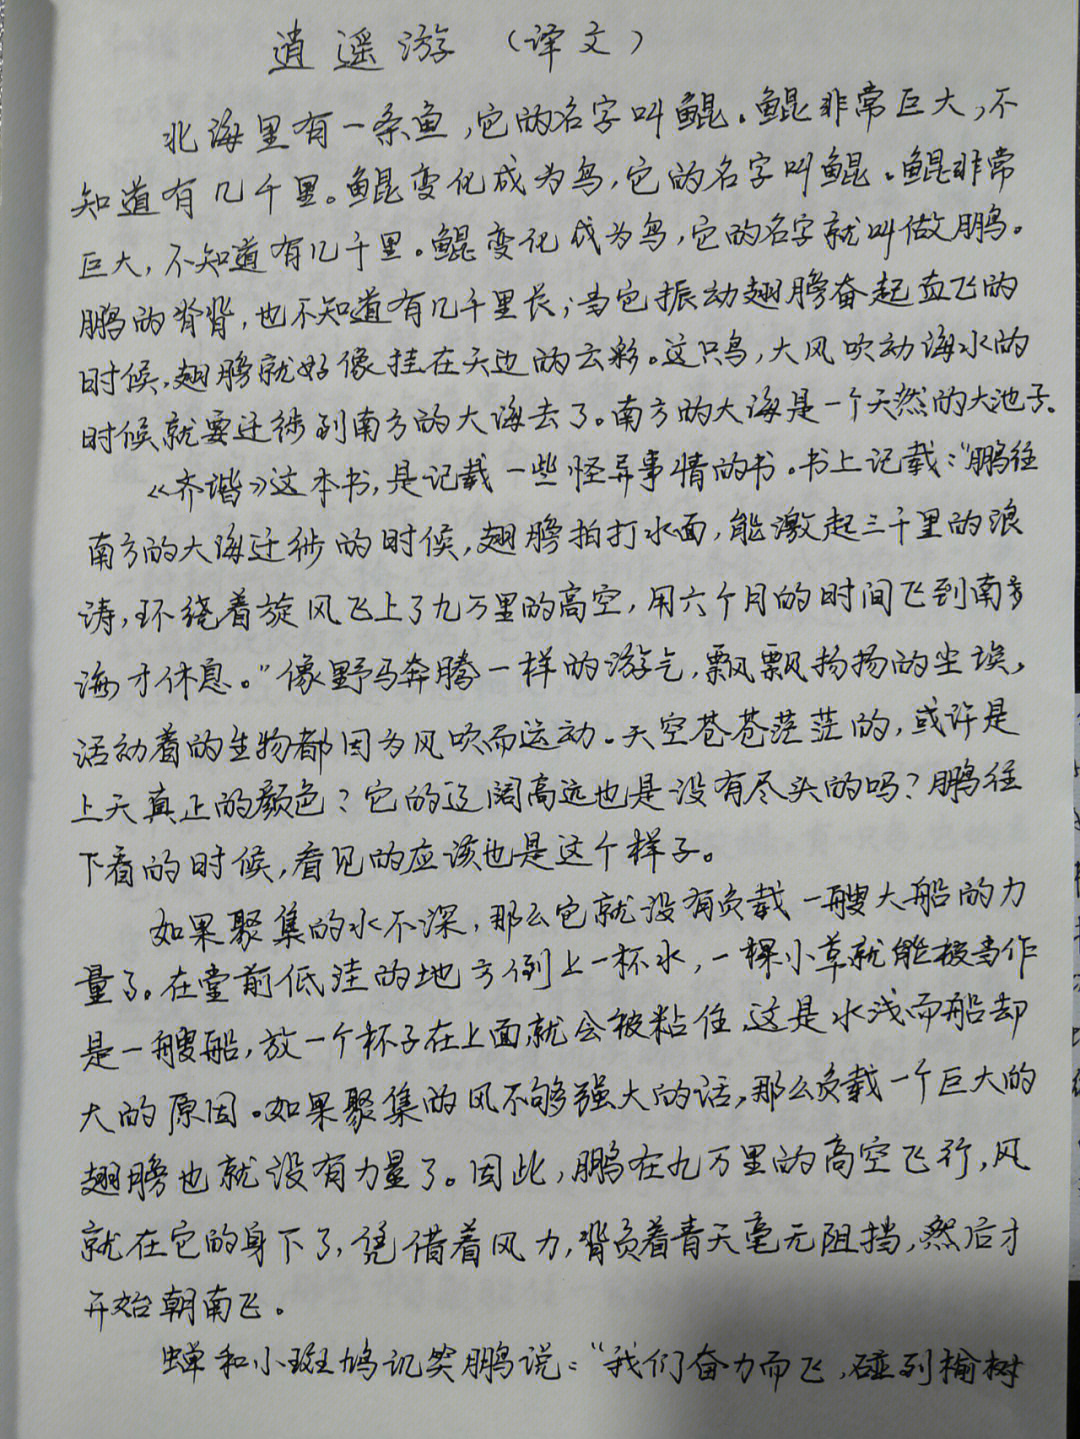 逍遥游（译文）
北海里有一条鱼,它的名字叫鲲。鲲非常巨大,不
知道有几千里。鲲变化成为鸟,它的名字叫鲲。鲲非常
巨大,不知道有几千里。鲲变化成为鸟,它的名字就叫做鹏。
鹏的脊背,也不知道有几千里长;当它振动翅膀奋起直飞的
时候,翅膀就好像挂在天边的云彩。这只鸟,大风吹动海水的
时候就要迁徙到南方的大海去了。南方的大海是一个天然的大池子.
《齐谐》这本书,是记载一些怪异事情的书。书上记载:“鹏往
南方的大海迁徙的时候,翅膀拍打水面,能激起三千里的浪
涛,环绕着旋风飞上了九万里的高空,用六个月的时间飞到南方
海才休息。”像野马奔腾一样的游气,飘飘扬扬的尘埃,
活动着的生物都因为风吹而运动。天空苍苍茫茫的,或许是
上天真正的颜色?它的辽阔高远也是没有尽头的吗?鹏往
下看的时候,看见的应该也是这个样子。
如果聚集的水不深,那么它就没有负载一艘大船的力
量了。在堂前低洼的地方倒上一杯水,一棵小草就能被当作
是一艘船,放一个杯子在上面就会被粘住,这是水浅而船却
大的原因。如果聚集的风不够强大的话,那么负载一个巨大的
翅膀也就没有力量了。因此,鹏在九万里的高空飞行,风
就在它的身下了,凭借着风力,背负着青天毫无阻挡,然后才
开始朝南飞。
蝉和小斑鸠讥笑鹏说:“我们奋力而飞,碰到榆树